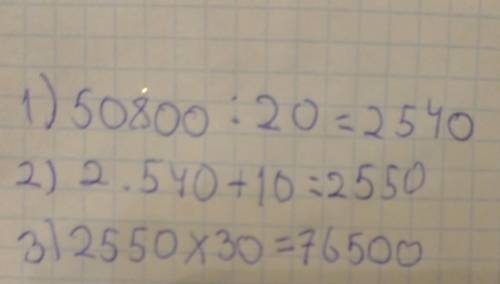 1) 50800 : 20 = 2540
2) 2.540 + 10 = 2550
3) 2550 x 30 = 76500